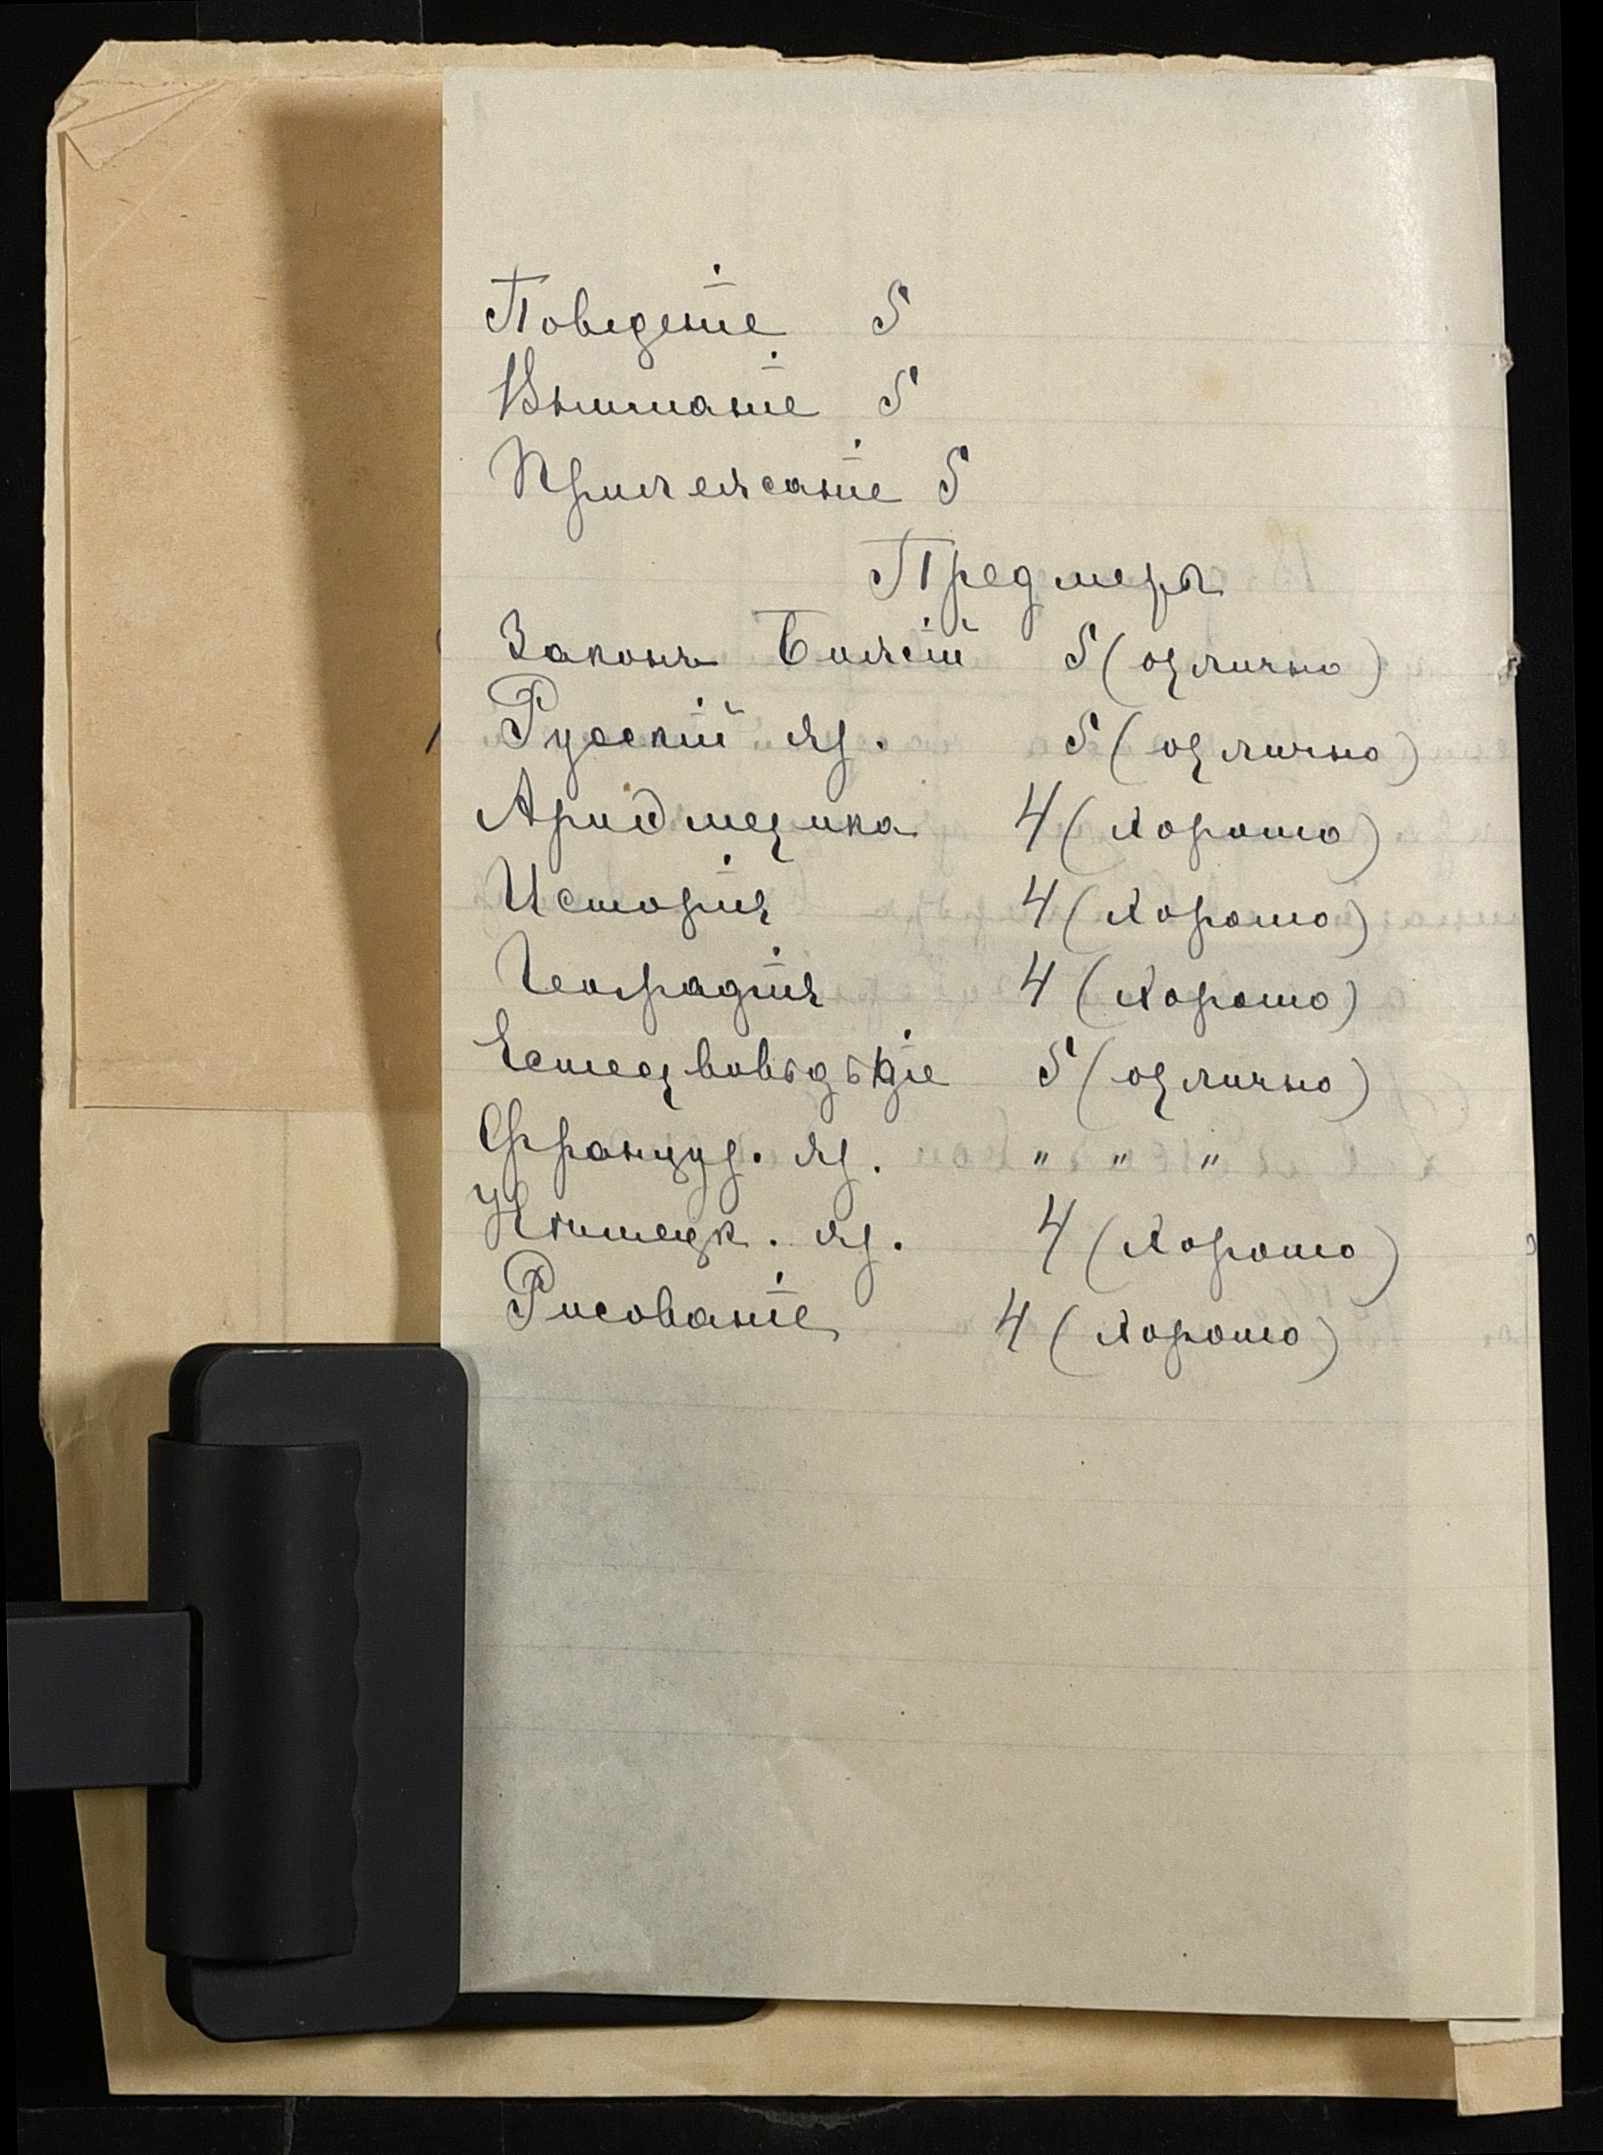 Поведеніе 5
Вниманіе 5
Прилежаніе 5
Предметы
Законъ Божій 5 (отлично)
Русскій яз. 5 (отлично)
Ариѳметика 4 (хорошо)
Исторія 4 (хорошо)
Географія 4 (хорошо)
Естествовѣдѣніе 5 (отлично)
Француз. яз. " " "
Нѣмецк. яз. 4 (хорошо)
Рисованіе 4 (хорошо)